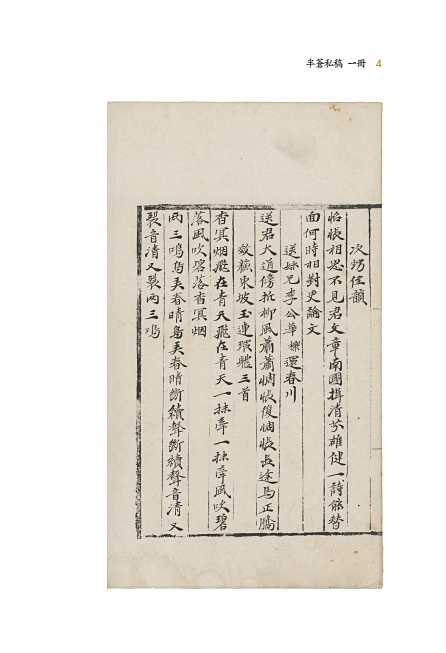 半蒼私稿 一冊 4
次甥侄韻
怊悵相思不見君文章南國揖清芬雄健一詩能替
面何時相對更論文
送妹兄李公華 還春川
送君大道傍折柳風蕭蕭惆悵復惆悵長途馬正驕
效蘇東坡玉連環體三首
杳冥烟飛在青天飛在青天一抹痕一抹痕風吹碧
落風吹碧落杳冥烟
兩三鳴鳥弄春晴鳥弄春晴斷續聲斷續聲音清又
裂音清又裂兩三鳴